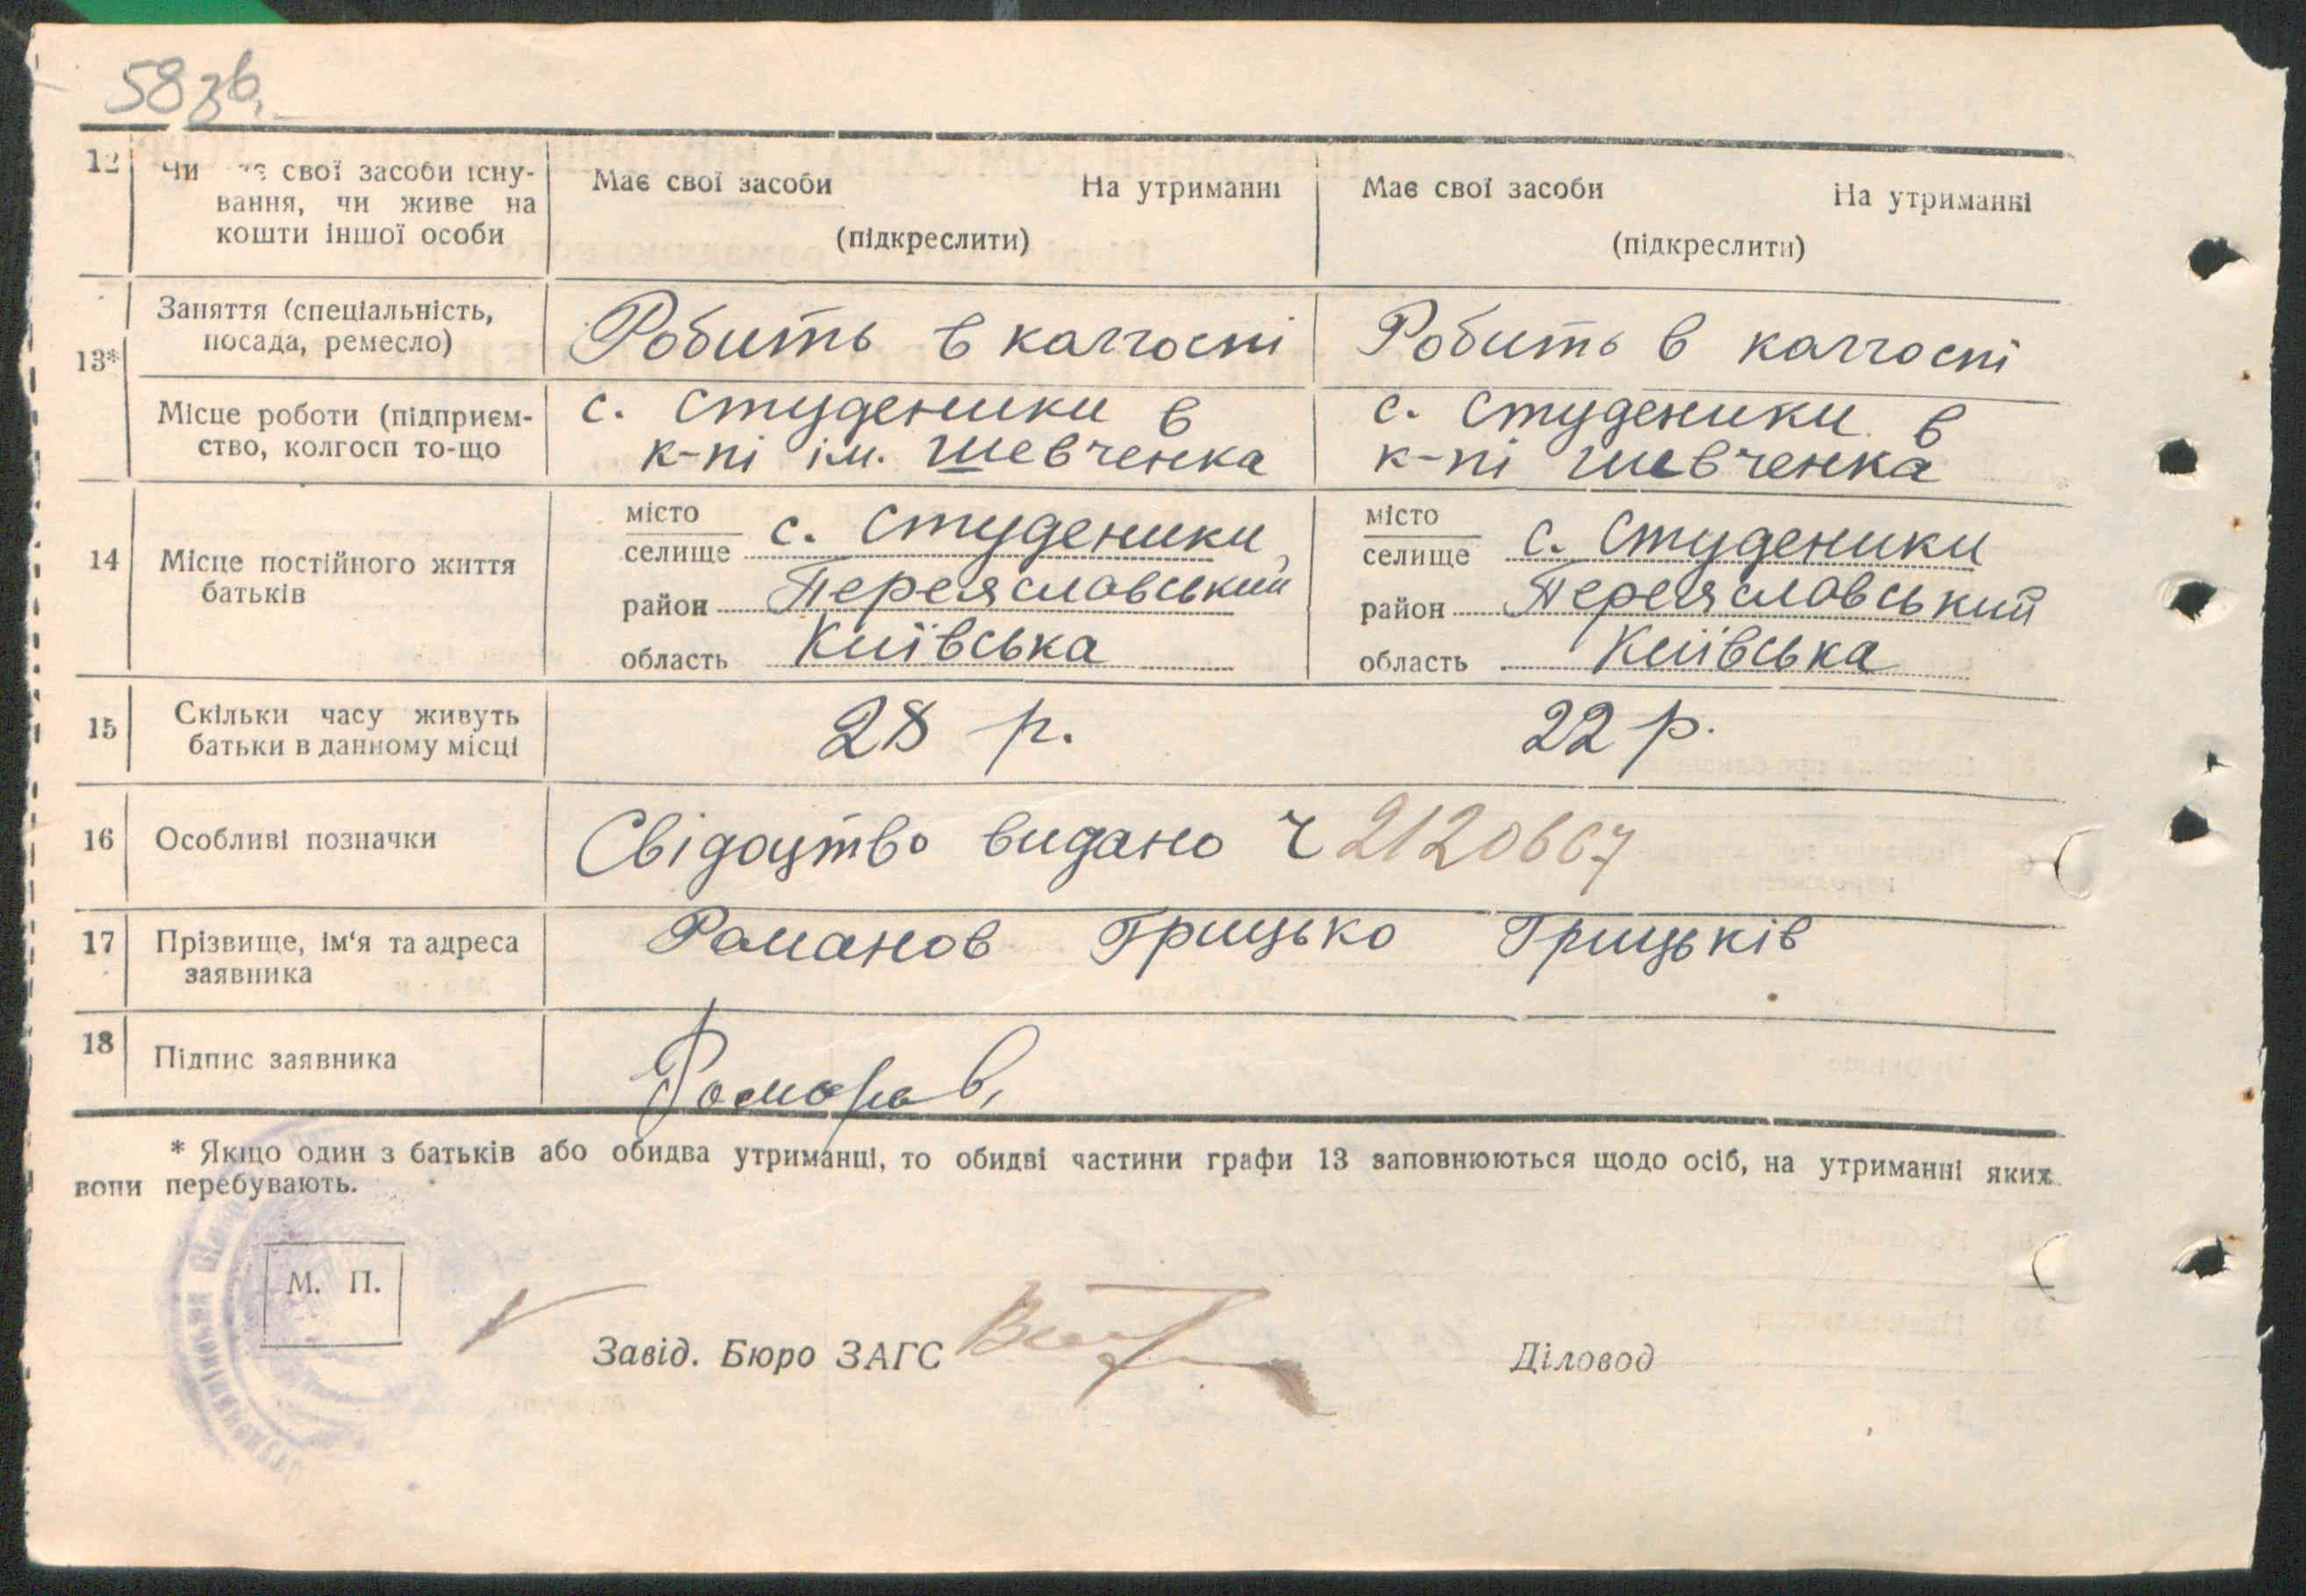 58 зв.
12 Чи має свої засоби існу- Має свої засоби На утриманні Має свої засоби На утриманні
вання, чи живе на
кошти іншої особи (підкреслити) (підкреслити)
Заняття (спеціальність,
посада, ремесло) Робить в калгоспі Робить в калгоспі
13*
Місце роботи (підприєм- с. Студеники в с. Студеники в
ство, колгосп то-що к-пі ім. Шевченка к-пі Шевченка
місто місто
селище с. Студеники, селище с. Студеники
14 Місце постійного життя
батьків
район Переяславський район Переяславський
область Київська область Київська
15 Скільки часу живуть
батьки в данному місці 28 р. 22 р.
16 Особливі позначки Свідоцтво видано Ч 2120667
17 Прізвище, ім'я та адреса Романов Грицько Грицьків
заявника
18 Підпис заявника Романов,
* Якщо один з батьків або обидва утриманці, то обидві частини графи 13 заповнюються щодо осіб, на утриманні яких
вони перебувають.
М. П.
Завід. Бюро ЗАГС Діловод